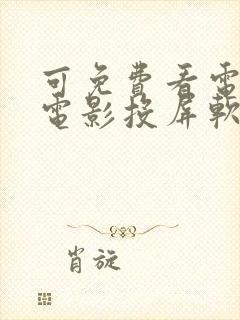 可免費看電
電影投屏軟
肖旋